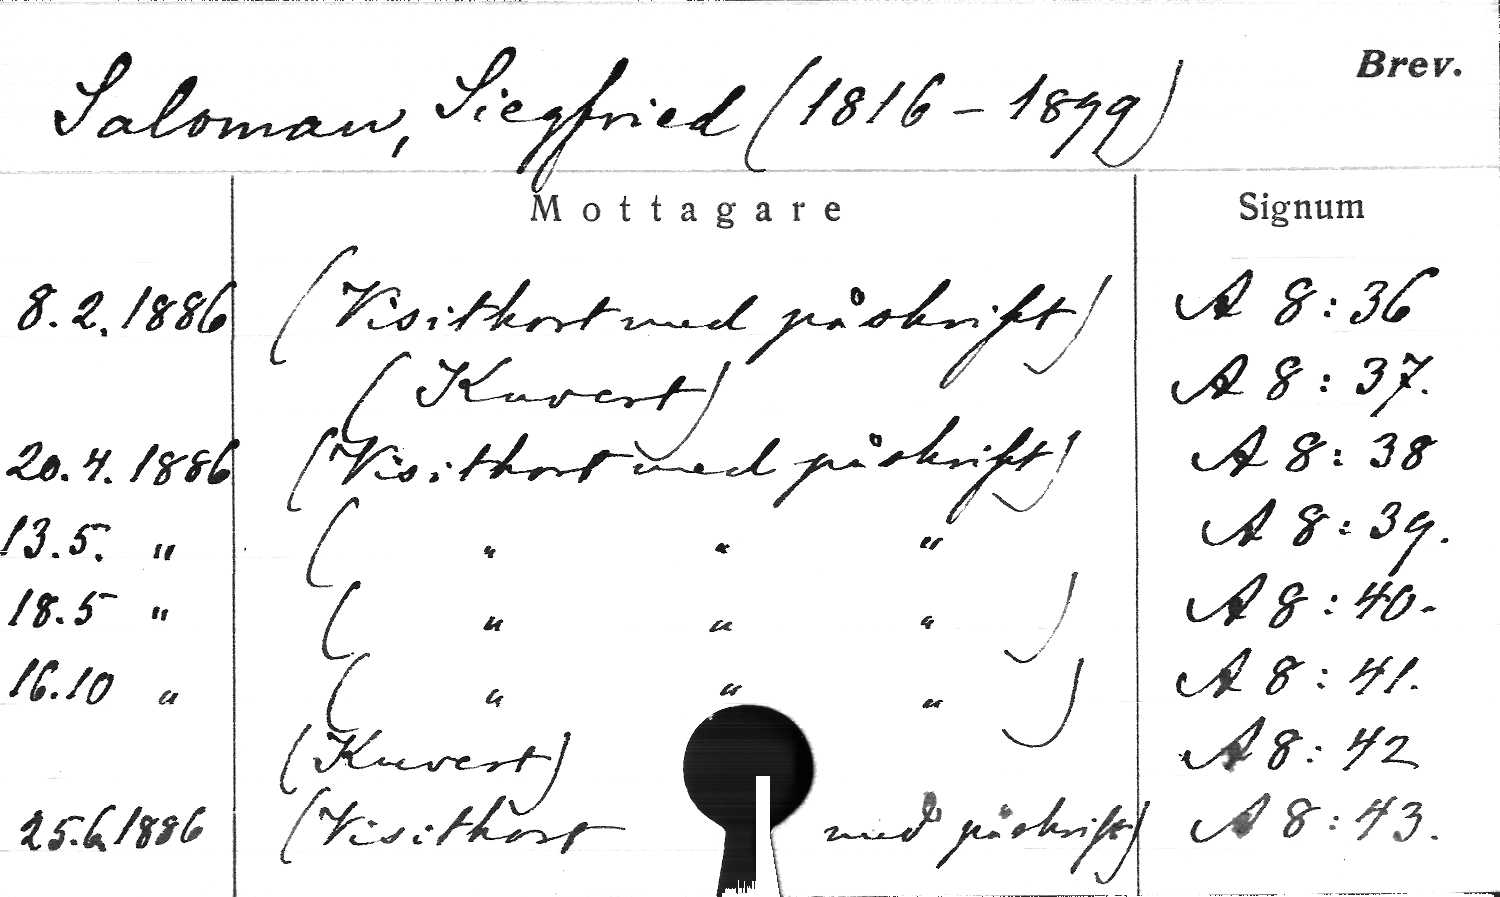 Brev.
Saloman, Siegfried (1816 – 1899)
Mottagare Signum
8.2.1886 (Visitkort med påskrift) A 8:36
(Kuvert) A 8:37.
20.4.1886 (Visitkort med påskrift) A 8:38
13.5. " ( " " " A 8:39.
18.5 " ( " " " ) A 8:40.
16.10 " ( " " " ) A 8:41.
(Kuvert) A 8:42
25.6.1886 (Visitkort med påskrift) A 8:43.